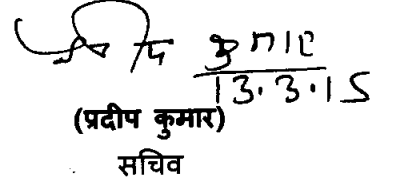 प्रदीप कुमार
13.3.15
(प्रदीप कुमार)
सचिव